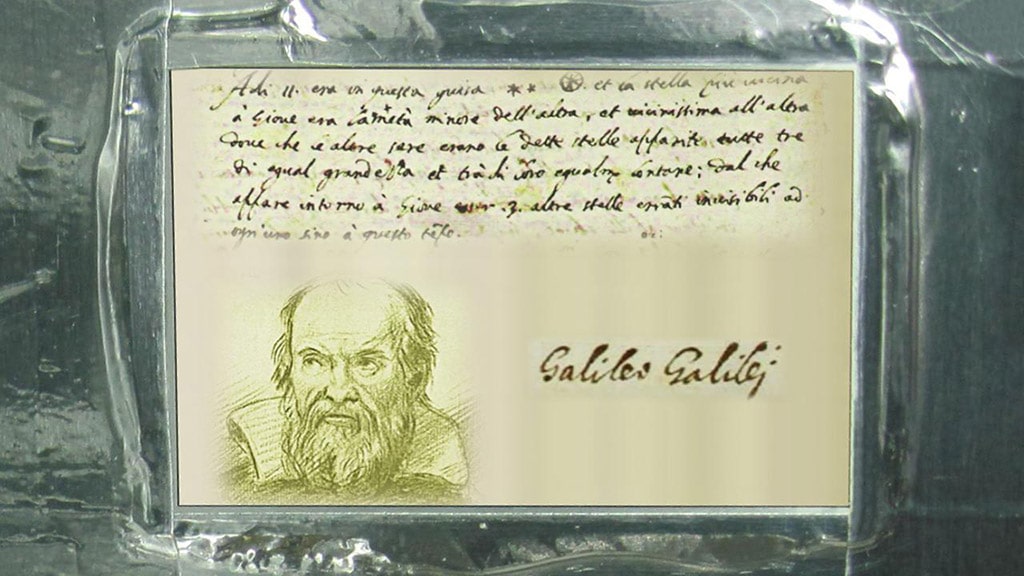 Adi 11. era in questa guisa * * . et la stella più vicina
à Giove era la metà minore dell'altra, et vicinissima all'altra
dove che le altre sere erano le dette stelle apparite tutte tre
di egual grandezza et trà di loro egualm lontane; dal che
appare intorno à Giove esser .3. altre stelle erranti invisibili ad
ogn'uno sino à questo tẽpo.
Galileo Galilej